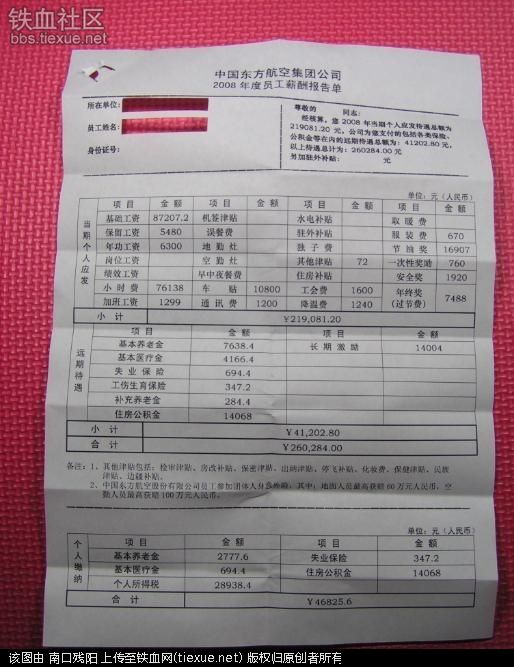 铁血社区
bbs.tiexue.net
中国东方航空集团公司
2008 年度员工薪酬报告单
所在单位:
员工姓名:
身份证号:
尊敬的 同志:
经核算,您 2008 年当期个人应发待遇总额为
219081.20 元,公司为您支付的包括各类保险、
公积金等在内的远期待遇总额为: 41202.80 元,
以上待遇总计为: 260284.00 元
另加驻外补贴: 元
单位: 元 (人民币)
当期个人应发
项 目 金 额 项 目 金 额 项 目 金 额 项 目 金 额
基础工资 87207.2 机签津贴 水电补贴 取 暖 费
保留工资 5480 误餐费 驻外补贴 服 装 费 670
年功工资 6300 地 勤 灶 独 子 费 节 油 奖 16907
岗位工资 空 勤 灶 其他津贴 72 一次性奖励 760
绩效工资 早中夜餐费 住房补贴 安全奖 1920
小 时 费 76138 车 贴 10800 工会费 1600 年终奖 (过节费) 7488
加班工资 1299 通 讯 费 1200 降温费 1240
小 计 ¥219,081.20
远期待遇
项 目 金 额 项 目 金 额
基本养老金 7638.4 长 期 激 励 14004
基本医疗金 4166.4
失 业 保 险 694.4
工伤生育保险 347.2
补充养老金 284.4
住房公积金 14068
小 计 ¥41,202.80
合 计 ¥260,284.00
备注: 1、其他津贴包括: 检审津贴、房改补贴、保密津贴、出纳津贴、停飞补贴、化妆费、保健津贴、民族
津贴、边疆补贴。
2、中国东方航空股份有限公司员工参加团体人身险,其中: 地面人员最高获赔 60 万元人民币,空
勤人员最高获赔 100 万元人民币。
单位: 元 (人民币)
个人缴纳
项 目 金 额 项 目 金 额
基本养老金 2777.6 失业保险 347.2
基本医疗金 694.4 住房公积金 14068
个人所得税 28938.4
合 计 ¥46825.6
该图由 南口残阳 上传至铁血网(tiexue.net) 版权归原创者所有